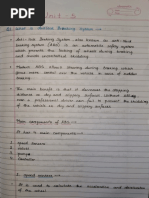 Q) What is Antilock Braking System :-
→ Anti-lock Braking System also known as anti-skid
braking system (ABS) is an automobile safety system
which prevents the locking of wheels during braking
and avoids uncontrolled skidding.
→ Modern ABS allows steering during braking which
gives more control over the vehicle in case of sudden
braking.
→ The main benefit is that it decreases the stopping
distance on dry and slippery surfaces. Without
a professional driver can fail to prevent the skidding
of on dry and slippery surfaces.
Main components of ABS :-
→ It has 4 main components -
1. Speed sensors
2. valves
3. pumps
4. Controller
1. Speed sensors
→ It is used to calculate the acceleration and deceleration
of the wheel